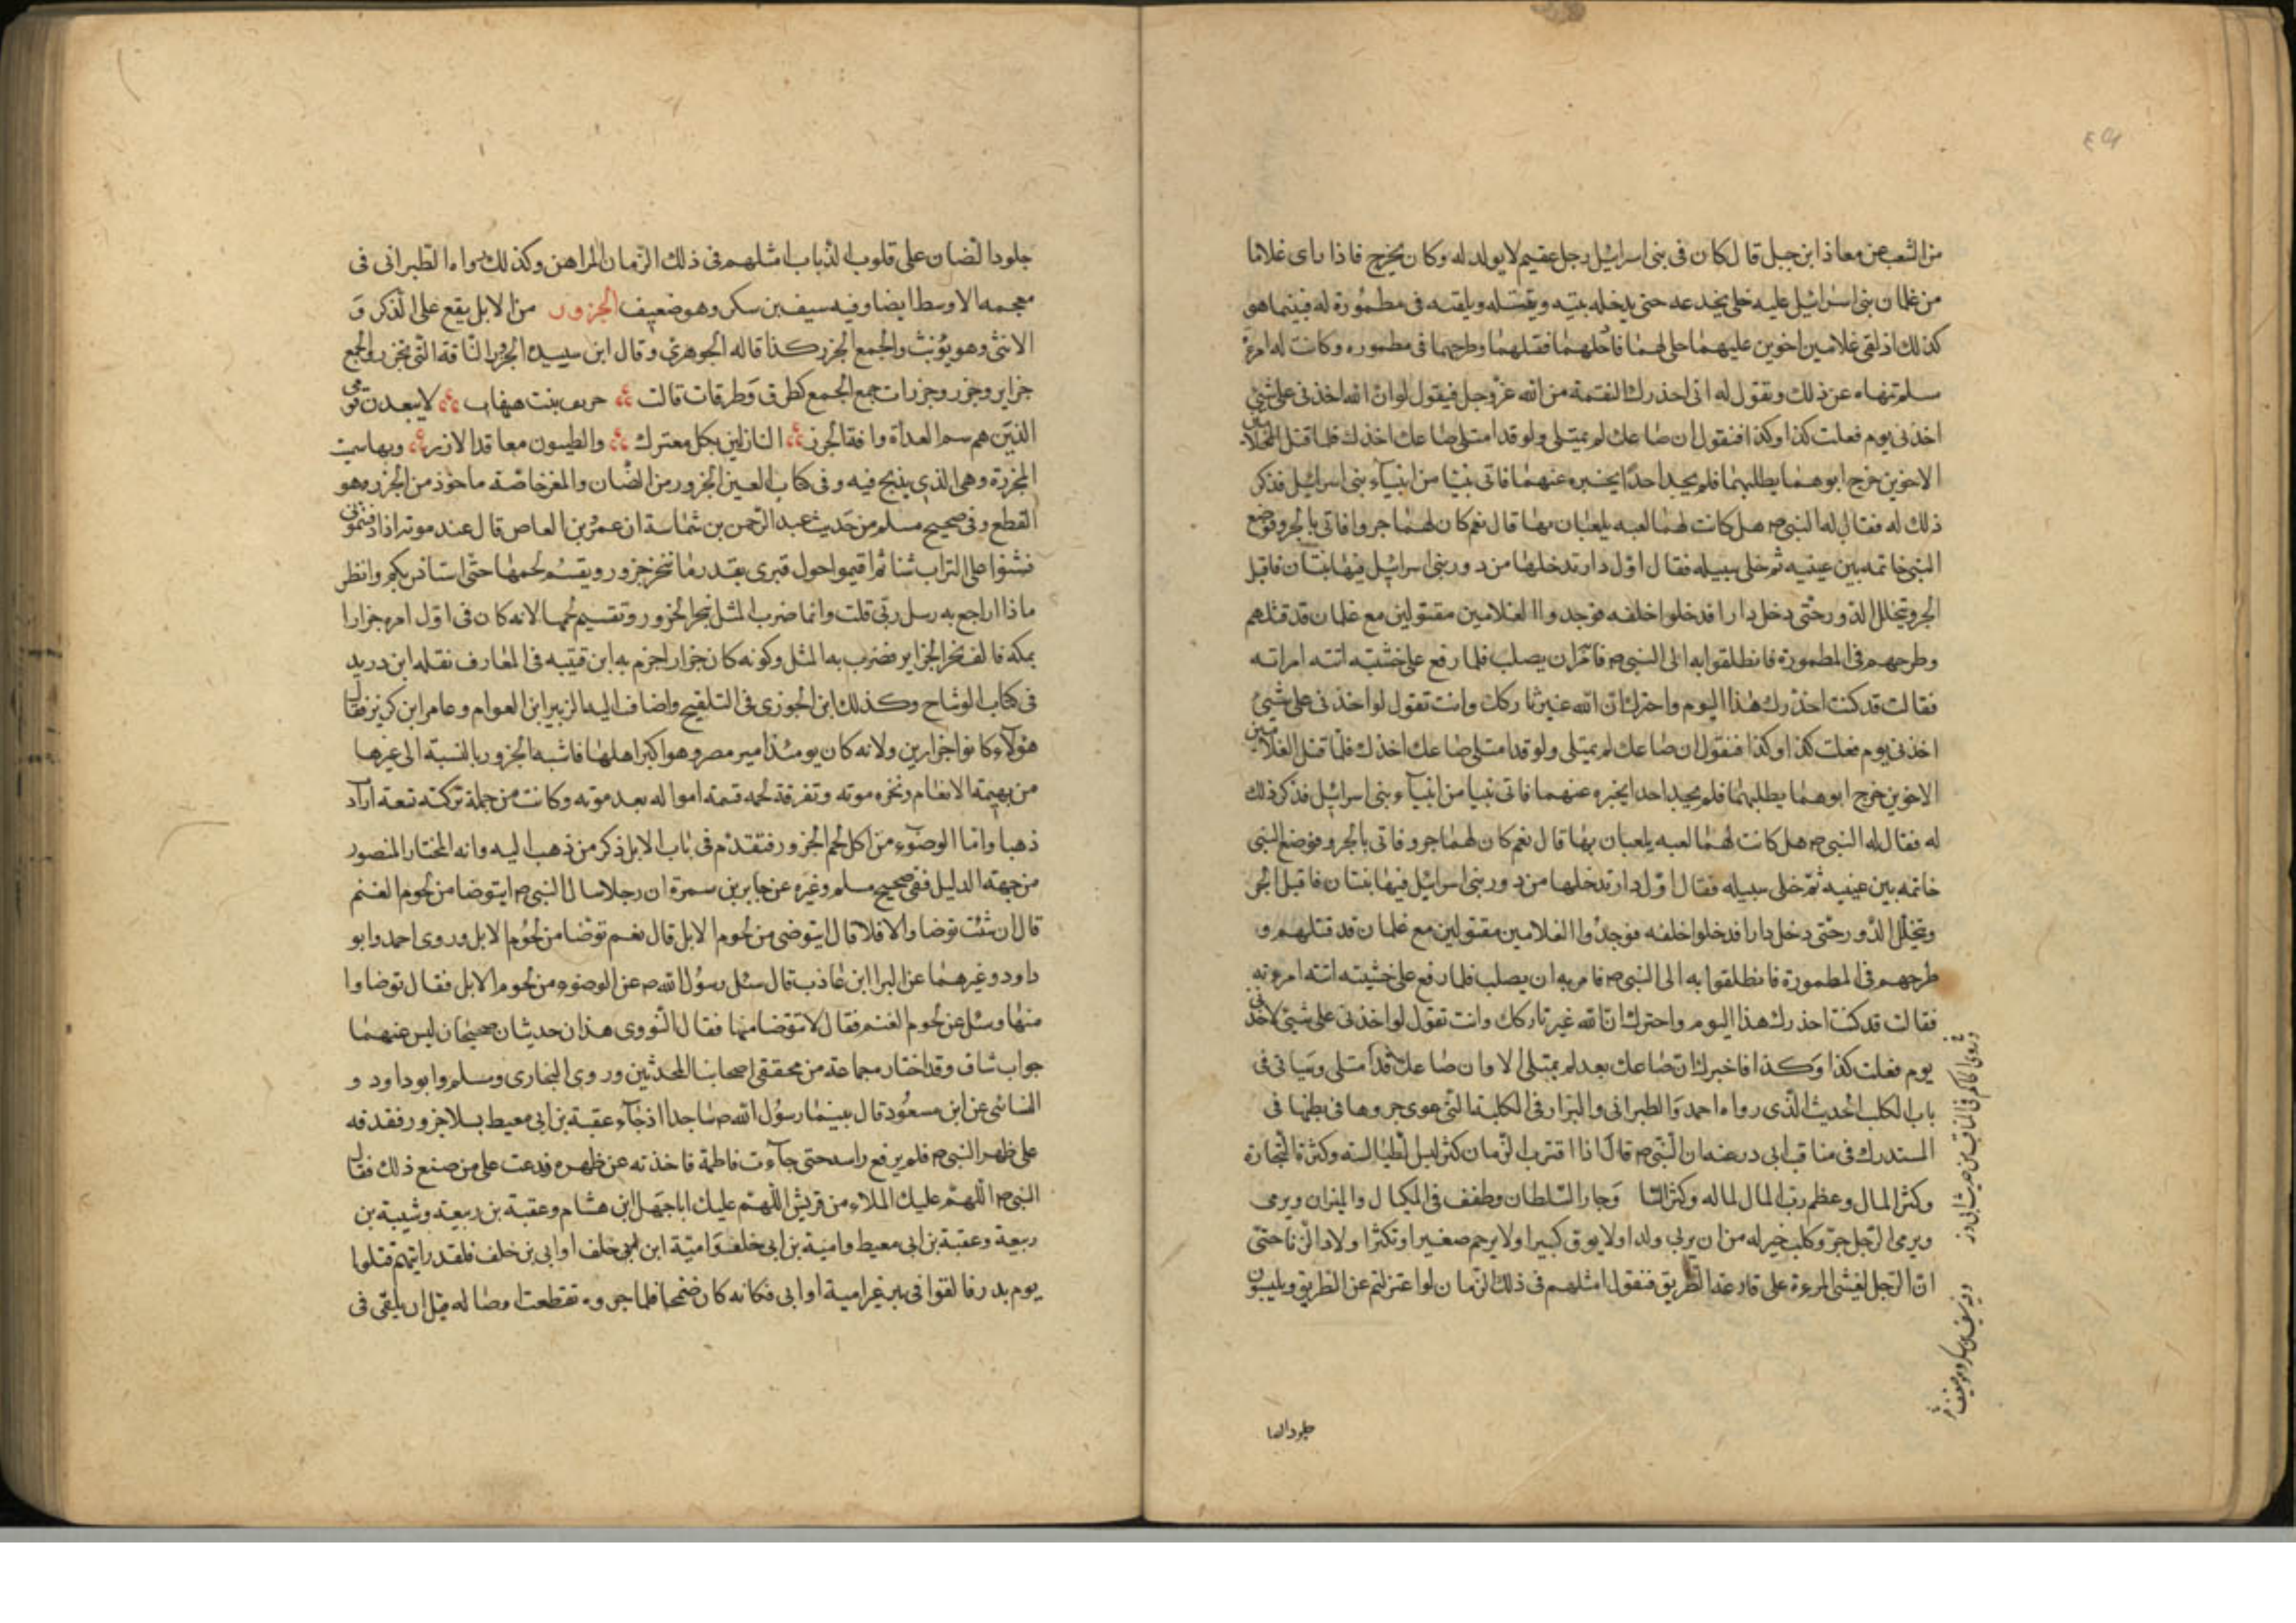 من الشعب عن معاذ ابن جبل قال كان فى بنى اسرائيل رجل عقيم لا يولد له وكان يخرج فاذا راى غلاما
من غلمان بنى اسرائيل عليه حلى يخدعه حتى يدخله بيته ويقتله ويلقيه فى مطمورة له فبينما هو
كذلك اذ لقى غلامين اخوين عليهما حلى لهما فادخلهما فقتلهما وطرحهما فى مطموره وكانت له امرءة
مسلمة تنهاه عن ذلك وتقول له انى احذرك النقمة من الله عز وجل فيقول لو ان الله اخذنى على شىء
اخذنى يوم فعلت كذا وكذا فتقول ان صاعك لم يمتلى ولو قد امتلى صاعك اخذك فلما قتل الغلامين
الاخوين خرج ابوهما يطلبهما فلم يجد احدا يخبره عنهما فاتى نبيا من انبيآء بنى اسرائيل فذكر
ذلك له فقال له النبى ص هل كانت لهما لعبه يلعبان بها قال نعم كان لهما جرو فاتى بالجرو فوضع
النبى خاتمه بين عينيه ثم خلى سبيله فقال اول دار تدخلها من دور بنى اسرائيل فيها بنتان فاقبل
الجرو يتخلل الدور حتى دخل دارا فدخلوا خلفه فوجدوا الغلامين مقتولين مع غلمان قد قتلهم
وطرحهم فى المطمورة فانطلقوا به الى النبى ص فامر ان يصلب فلما رفع على خشبته اتته امراته
فقالت قد كنت احذرك هذا اليوم واخبرك ان الله غير تاركك وانت تقول لو اخذنى على شىء
اخذنى يوم فعلت كذا وكذا فتقول ان صاعك لم يمتلى ولو قد امتلى صاعك اخذك فلما قتل الغلامين
الاخوين خرج ابوهما يطلبهما فلم يجد احدا يخبره عنهما فاتى نبيا من انبيآء بنى اسرائيل فذكر ذلك
له فقال له النبى ص هل كانت لهما لعبه يلعبان بها قال نعم كان لهما جرو فاتى بالجرو فوضع النبى
خاتمه بين عينيه ثم خلى سبيله فقال اول دار تدخلها من دور بنى اسرائيل فيها بنتان فاقبل الجر
ويتخلل الدور حتى دخل دارا فدخلوا خلفه فوجدوا الغلامين مقتولين مع غلمان قد قتلهم و
طرحهم فى المطمورة فانطلقوا به الى النبى ص فامر به ان يصلب فلما رفع على خشبته اتته امرءته
فقالت قد كنت احذرك هذا اليوم واخبرك ان الله غير تاركك وانت تقول لو اخذنى على شىء لاخذنى
يوم فعلت كذا وكذا فاخبرك ان صاعك بعد لم يمتلى الا وان صاعك قد امتلى وسياتى فى
باب الكلب الحديث الذى رواه احمد والطبرانى والبزار فى الكلبة التى عوى جروها فى بطنها فى
المستدرك فى مناقب ابى ذر عنه ان النبى ص قال اذا اقترب الزمان كثر لبس الطيالسة وكثرة التجارة
وكثر المال وعظم رب المال لماله وكثر النسا وجار السلطان وطفف فى المكيال والميزان ويربى
ويربى الرجل جرو كلب خير له من ان يربى ولدا ولا يوقر كبيرا ولا يرحم صغيرا وتكثر اولاد الزنا حتى
ان الرجل ليغشى المرءة على قارعة الطريق فتقول امثلهم فى ذلك الزمان لو اعتزلتم عن الطريق ويلبسون
وروى الحاكم فى المناقب من حديث ابى ذر
وفيه سيف بن مسكر وهو ضعيف
جلود الضا
جلود الضان على قلوب الذباب امثلهم فى ذلك الزمان المراهن وكذلك رواه الطبرانى فى
معجمه الاوسط ايضا وفيه سيف بن سكر وهو ضعيف الجزور من الابل يقع على الذكر و
الانثى وهو يؤنث والجمع الجزر كذا قاله الجوهرى وقال ابن سيده الجزور الناقة التى تجزر والجمع
جزاير وجزر وجزرات جمع الجمع كطرق وطرقات قالت خريق بنت هفاب لا يبعدن قومى
الذين هم سم العداة وافة الجزر النازلين بكل معترك والطيبون معاقد الازر وبها سميت
المجزرة وهى الذى يذبح فيه وفى كتاب العين الجزور من الضان والمعز خاصة ماخوذ من الجزر وهو
القطع وفى صحيح مسلم من حديث عبد الرحمن بن شماسة ان عمرو بن العاص قال عند موته اذا دفنتمونى
فشنوا على التراب شنا ثم اقيموا حول قبرى بقدر ما تنحر جزور ويقسم لحمها حتى استانس بكم وانظر
ماذا اراجع به رسل ربى قلت وانما ضرب المثل بنحر الجزور وتقسيم لحمها لانه كان فى اول امره جزارا
بمكه فالف نحر الجزاير فضرب به المثل وكونه كان جزارا جزم به ابن قتيبه فى المعارف نقله ابن دريد
فى كتاب الوشاح وكذلك ابن الجوزى فى التلقيح واضاف اليه الزبير ابن العوام وعامر ابن كريز فقال
هؤلآء كانوا جزارين ولانه كان يومئذ امير مصر وهو اكبر اهلها فاشبه الجزور بالنسبة الى غيرها
من بهيمة الانعام ونحره موته وتفرقة لحمه قسمة امواله بعد موته وكانت من جملة تركته تسعة ارآد
ذهبا واما الوضوء من اكل لحم الجزور فتقدم فى باب الابل ذكر من ذهب اليه وانه المختار المنصور
من جهة الدليل ففى صحيح مسلم وغيره عن جابر بن سمرة ان رجلا سال النبى ص ايتوضا من لحوم الغنم
قال ان شئت توضا والا فلا قال ايتوضى من لحوم الابل قال نعم توضا من لحوم الابل وروى احمد وابو
داود وغيرهما عن البرا ابن عاذب قال سئل رسول الله ص عن الوضوء من لحوم الابل فقال توضاوا
منها وسئل عن لحوم الغنم فقال لا تتوضا منها فقال النووى هذان حديثان صحيحان ليس عنهما
جواب شاف وقد اختار مجماعة من محققى اصحابنا المحدثين وروى البخارى ومسلم وابو داود و
النسائى عن ابن مسعود قال بينما رسول الله ص ساجدا اذ جآء عقبة بن ابى معيط بسلا جزور فقدفه
على ظهر النبى ص فلم يرفع راسه حتى جآءت فاطمة فاخذته عن ظهره ودعت على من صنع ذلك فقال
النبى ص اللهم عليك الملاء من قريش اللهم عليك ابا جهل ابن هشام وعقبة بن ربيعة وشيبة بن
ربيعة وعقبة بن ابى معيط وامية بن ابى خلف وامية ابن ابى خلف او ابى بن خلف فلقد رايتهم قتلوا
يوم بدر فالقوا فى بير غير امية او ابى فكانه كان ضخما فلما جروه تقطعت اوصاله قبل ان يلقى فى